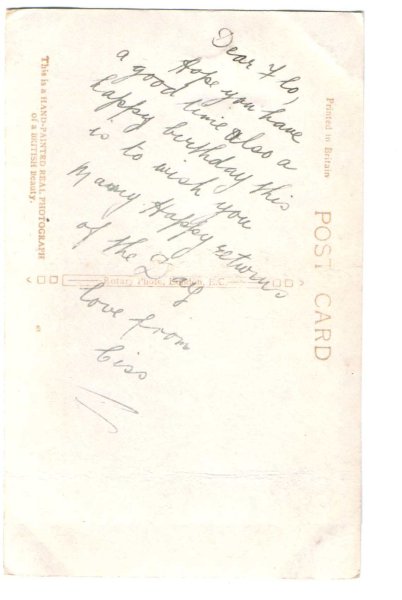 Dear Flo,
Hope you have
a good time also a
happy birthday this
is to wish you
Many Happy returns
of the Day
love from
Ciss
Printed in Britain
POST CARD
Rotary Photo, London, E.C.
This is a HAND-PAINTED REAL PHOTOGRAPH
of a BRITISH Beauty.